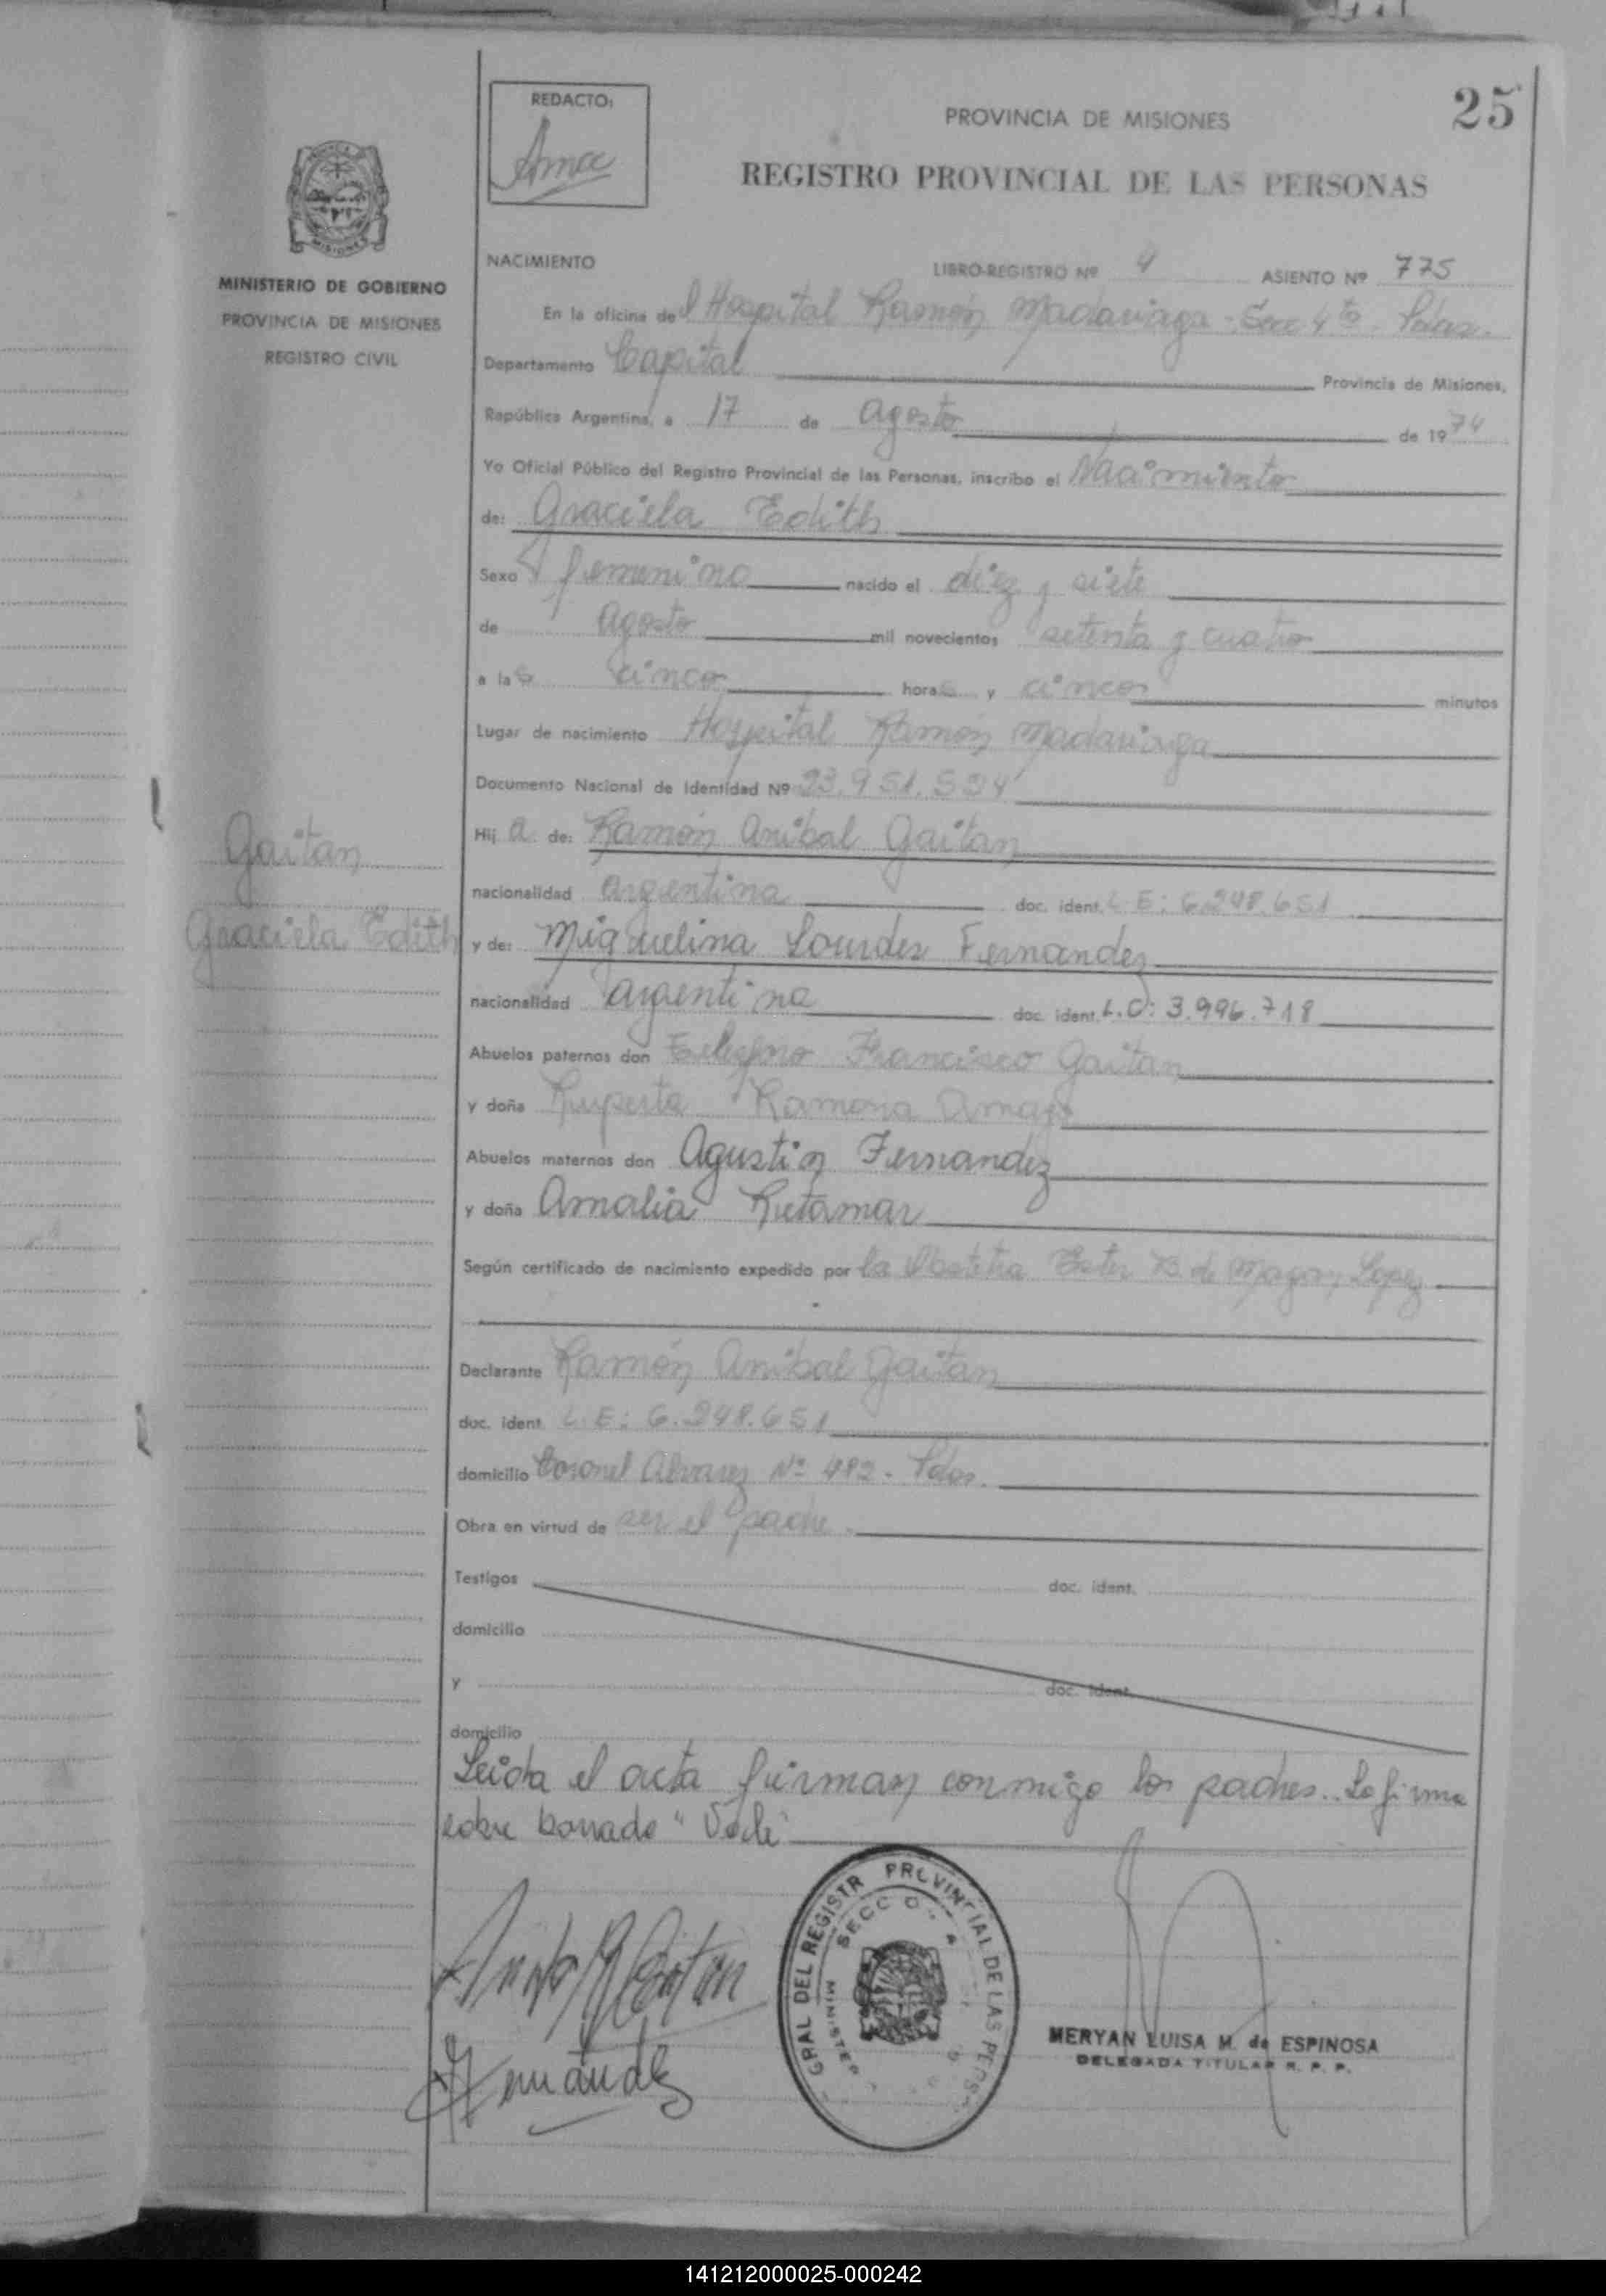 25
REDACTO:
PROVINCIA DE MISIONES
REGISTRO PROVINCIAL DE LAS PERSONAS
MISIONES
MINISTERIO DE GOBIERNO
PROVINCIA DE MISIONES
REGISTRO CIVIL
NACIMIENTO LIBRO-REGISTRO Nº 4 ASIENTO Nº 775
En la oficina del Hospital Ramón Madariaga - Secc 4ta. Pdas.
Departamento Capital Provincia de Misiones,
República Argentina, a 17 de Agosto de 1974
Yo Oficial Público del Registro Provincial de las Personas, inscribo el Nacimiento
de: Graciela Edith
Sexo femenino nacido el diez y siete
de Agosto mil novecientos setenta y cuatro
a las cinco horas y cinco minutos
Lugar de nacimiento Hospital Ramón Madariaga
Documento Nacional de Identidad Nº 23.951.524
Gaitan
Graciela Edith
Hija de: Ramón Anibal Gaitan
nacionalidad argentina doc. ident. L E: 6.248.651
y de: Miguelina Lourdes Fernandez
nacionalidad argentina doc. ident. L.C: 3.996.718
Abuelos paternos don Telesforo Francisco Gaitan
y doña Ruperta Ramona
Abuelos maternos don Agustin Fernandez
y doña Amalia Retamar
Según certificado de nacimiento expedido por la Obstetra Ester B. de Lopez
Declarante Ramón Anibal Gaitan
doc. ident. L. E: 6.248.651
domicilio Coronel Alvarez Nº 482 - Pdas.
Obra en virtud de ser el padre.
Testigos doc. ident.
domicilio
y doc. ident.
domicilio
Leida el acta firman conmigo los padres. Lo firma
sobre borrado "Vale"
GRAL DEL REGISTR PROVINCIAL DE LAS PERS
Fernández
MERYAN LUISA M. de ESPINOSA
DELEGADA TITULAR R. P. P.
141212000025-000242